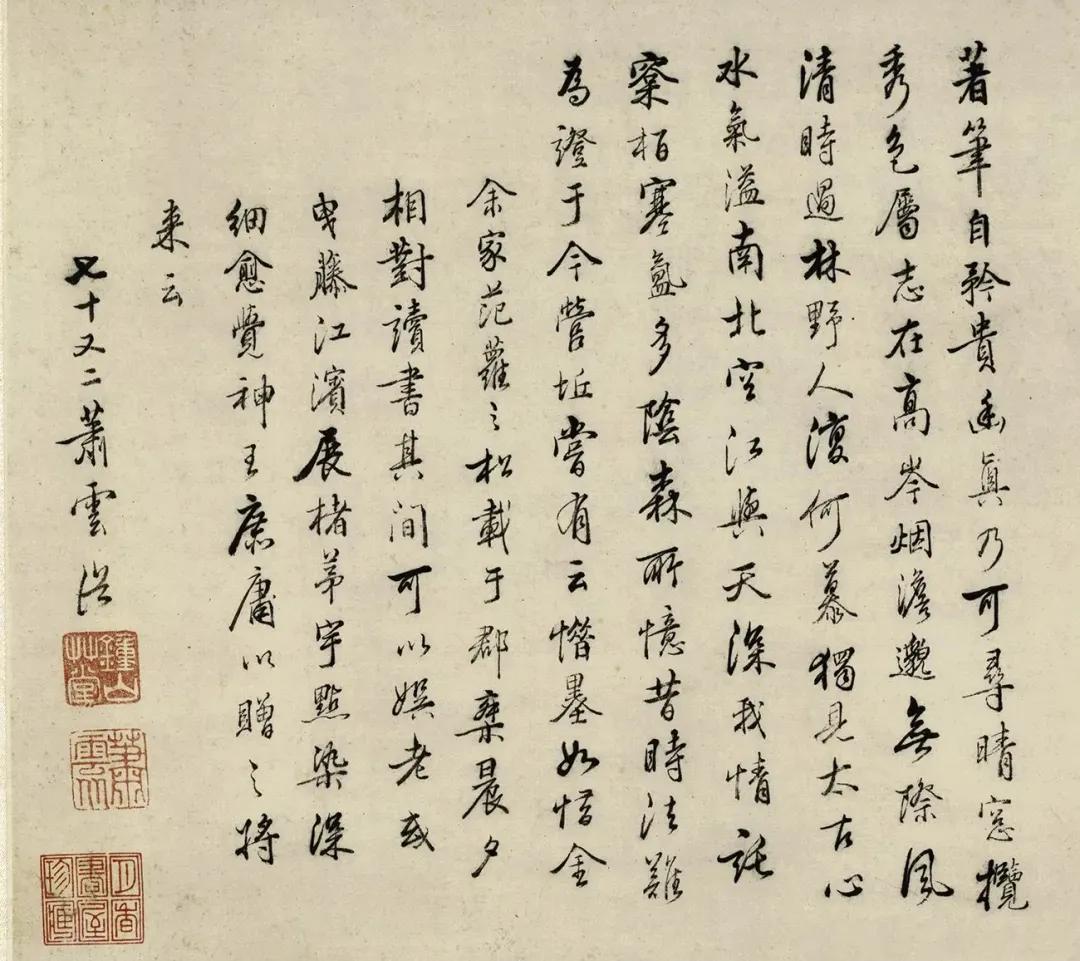 著筆自矜貴幽真乃可尋晴窓攬
秀色屬志在高岑烟澹邈無際風
清時過林野人復何慕獨見太古心
水氣溢南北空江與天深我情託
寀栢寒氳多陰森所憶昔時法難
為證于今營坵嘗有云惜墨如惜金
余家范蘿之松載于郡乗晨夕
相對讀書其間可以娯老或
曳藤江濱展楮苐宇點染深
細愈覺神王庶庸以贈之將
来云
七十又二蕭雲從
鍾山
蕭雲從
珍
畫屋